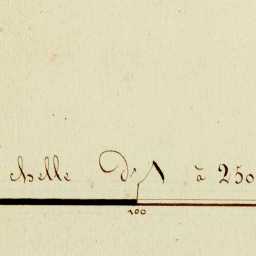 chelle D'1 à 250
100